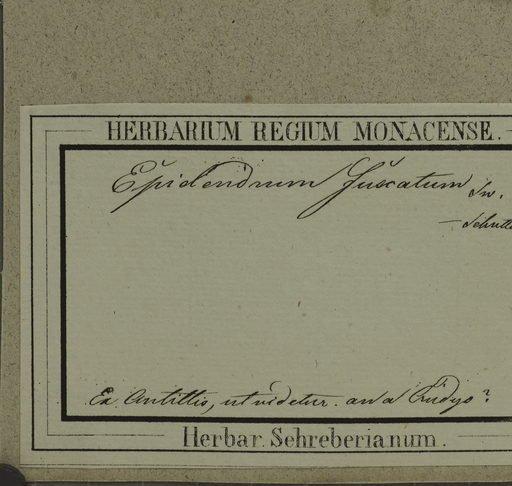 HERBARIUM REGIUM MONACENSE.
Epidendrum fuscatum Sw.
Ex Antillis, ut videtur. an a Crudyo?
Herbar. Schreberianum.